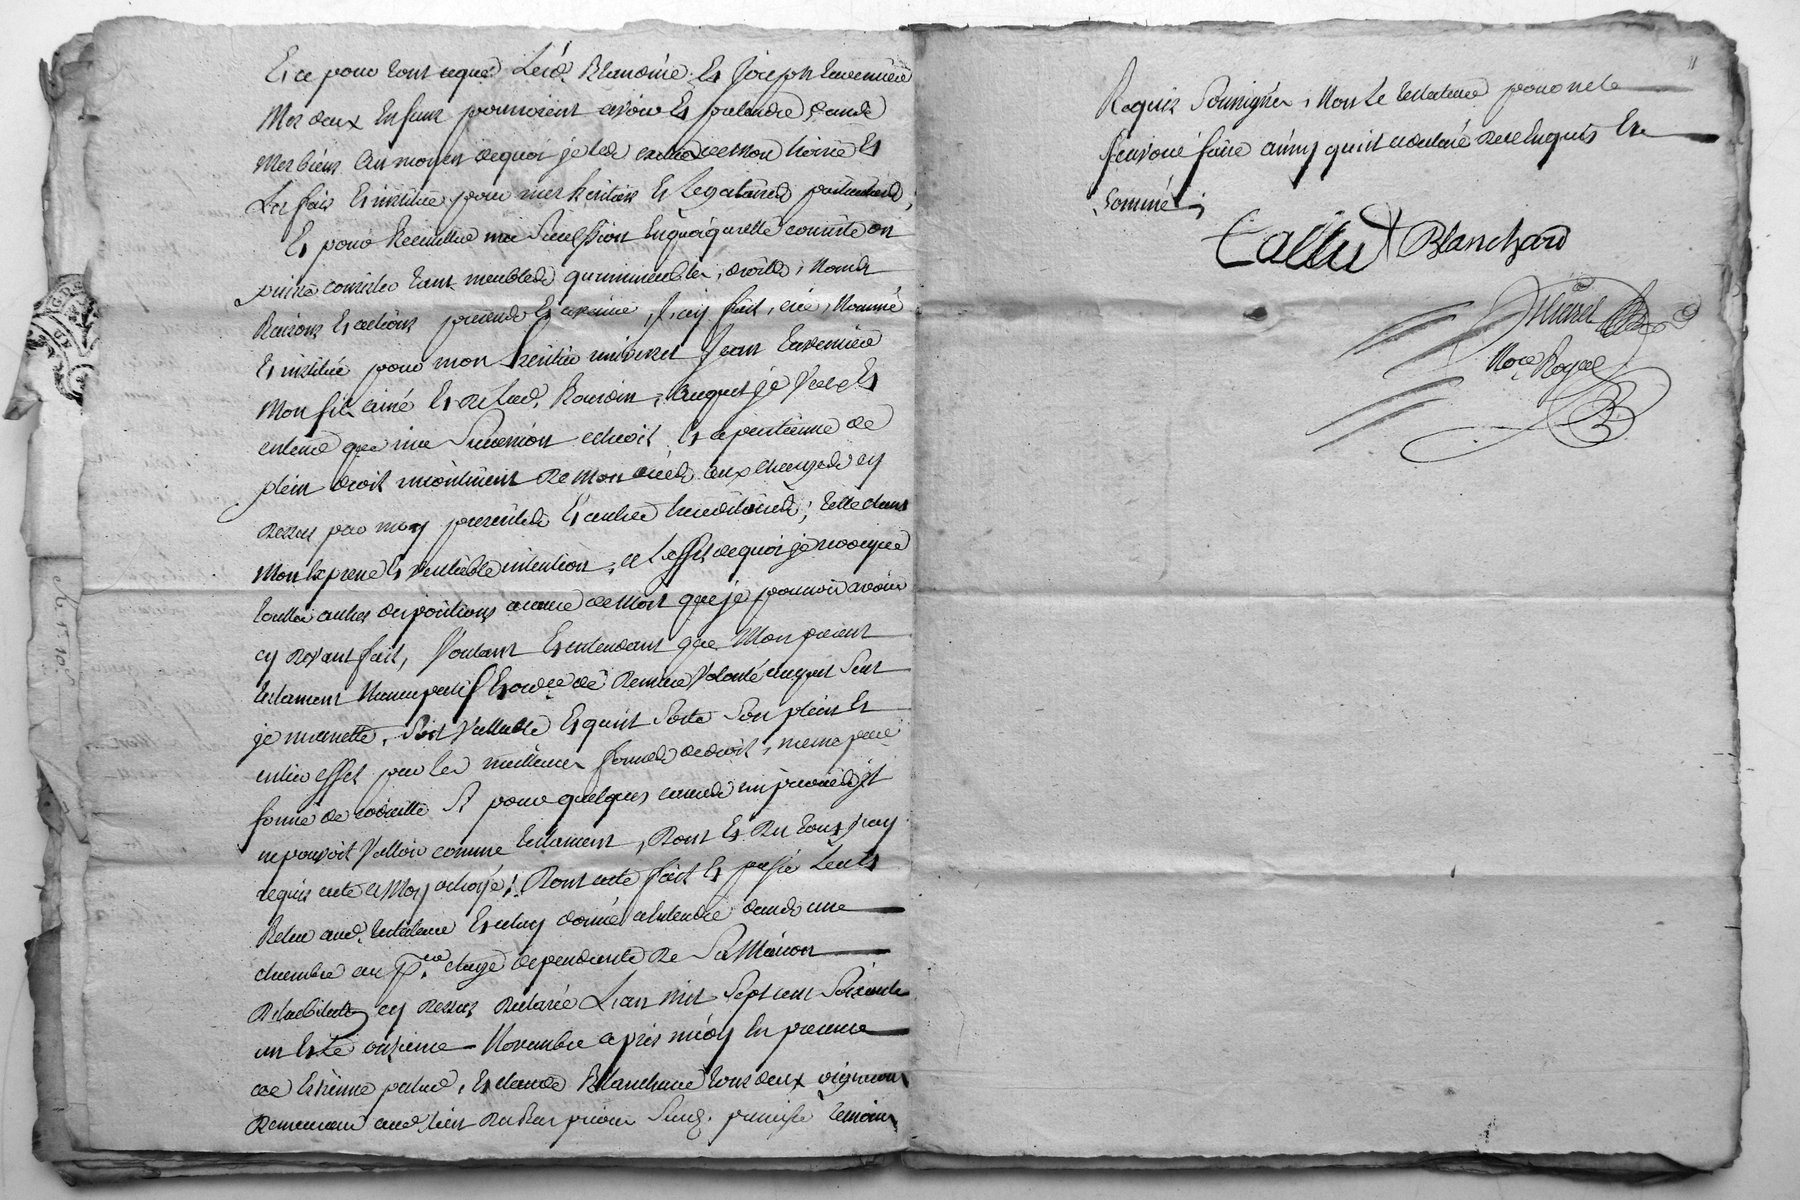 Et ce pour tout ce que Lesd. Blandine Et Joseph Lavernière
Mes deux Enfans pourroient avoir Et pretendre dans
Mes biens Au moyen de quoi je Les exclus de Mon hoirie Et
Les fais Et institue pour mes heritiers Et Legataires particuliers,
Et pour Recueillir ma Succession En quoi qu'elle consiste ou
puisse consister tant meubles qu'immeubles, droits, Noms
Raisons Et actions presents Et avenir, J'ay fait, crée, Nommé
Et institué pour mon heritier universel Jean Lavernière
Mon fils ainé Et de Lad. , Auquel je veux Et
entend que ma Succession echoit Et apartienne de
plein droit incontinent de Mon décès aux charges cy
dessus par moy Et autres hereditaires; telle étant
Mon Expresse Et veritable intention, a L'effet de quoi je revoque
toutes autres dispositions a cause de Mort que je pourrois avoir
cy devant fait, Voulant Et entendant que Mon présent
testament Nuncupatif Et ordre de derniere Volonté auquel seul
je m'arrette, Soit Vallable Et qu'il sorte Son plein Et
entier effet par les meilleures formes de droit, meme par
forme de codicille Si pour quelques causes imprevües il
ne pouvoit Valloir comme testament, Dont Et Du tout j'ay
requis acte a Moy octroyé; Dont acte fait Et passé Leu Et
Releu aud. testateur Et a luy donné a Entendre dans une
chambre au p.er etage dependante de Sa Maison
D'habitation cy dessus Declarée L'an mil Sept cent Soixante
un Et Le onzieme Novembre après midy En presence
de Estienne , Et claude Blanchard tous deux vignerons
Demeurans aud. lieu Du temoins
Requis Soussignés, Non Le testateur pour ne le
sçavoir faire ainsy qu'il a declaré de ce Enquis Et
Sommé
Blanchard
No.re Royal